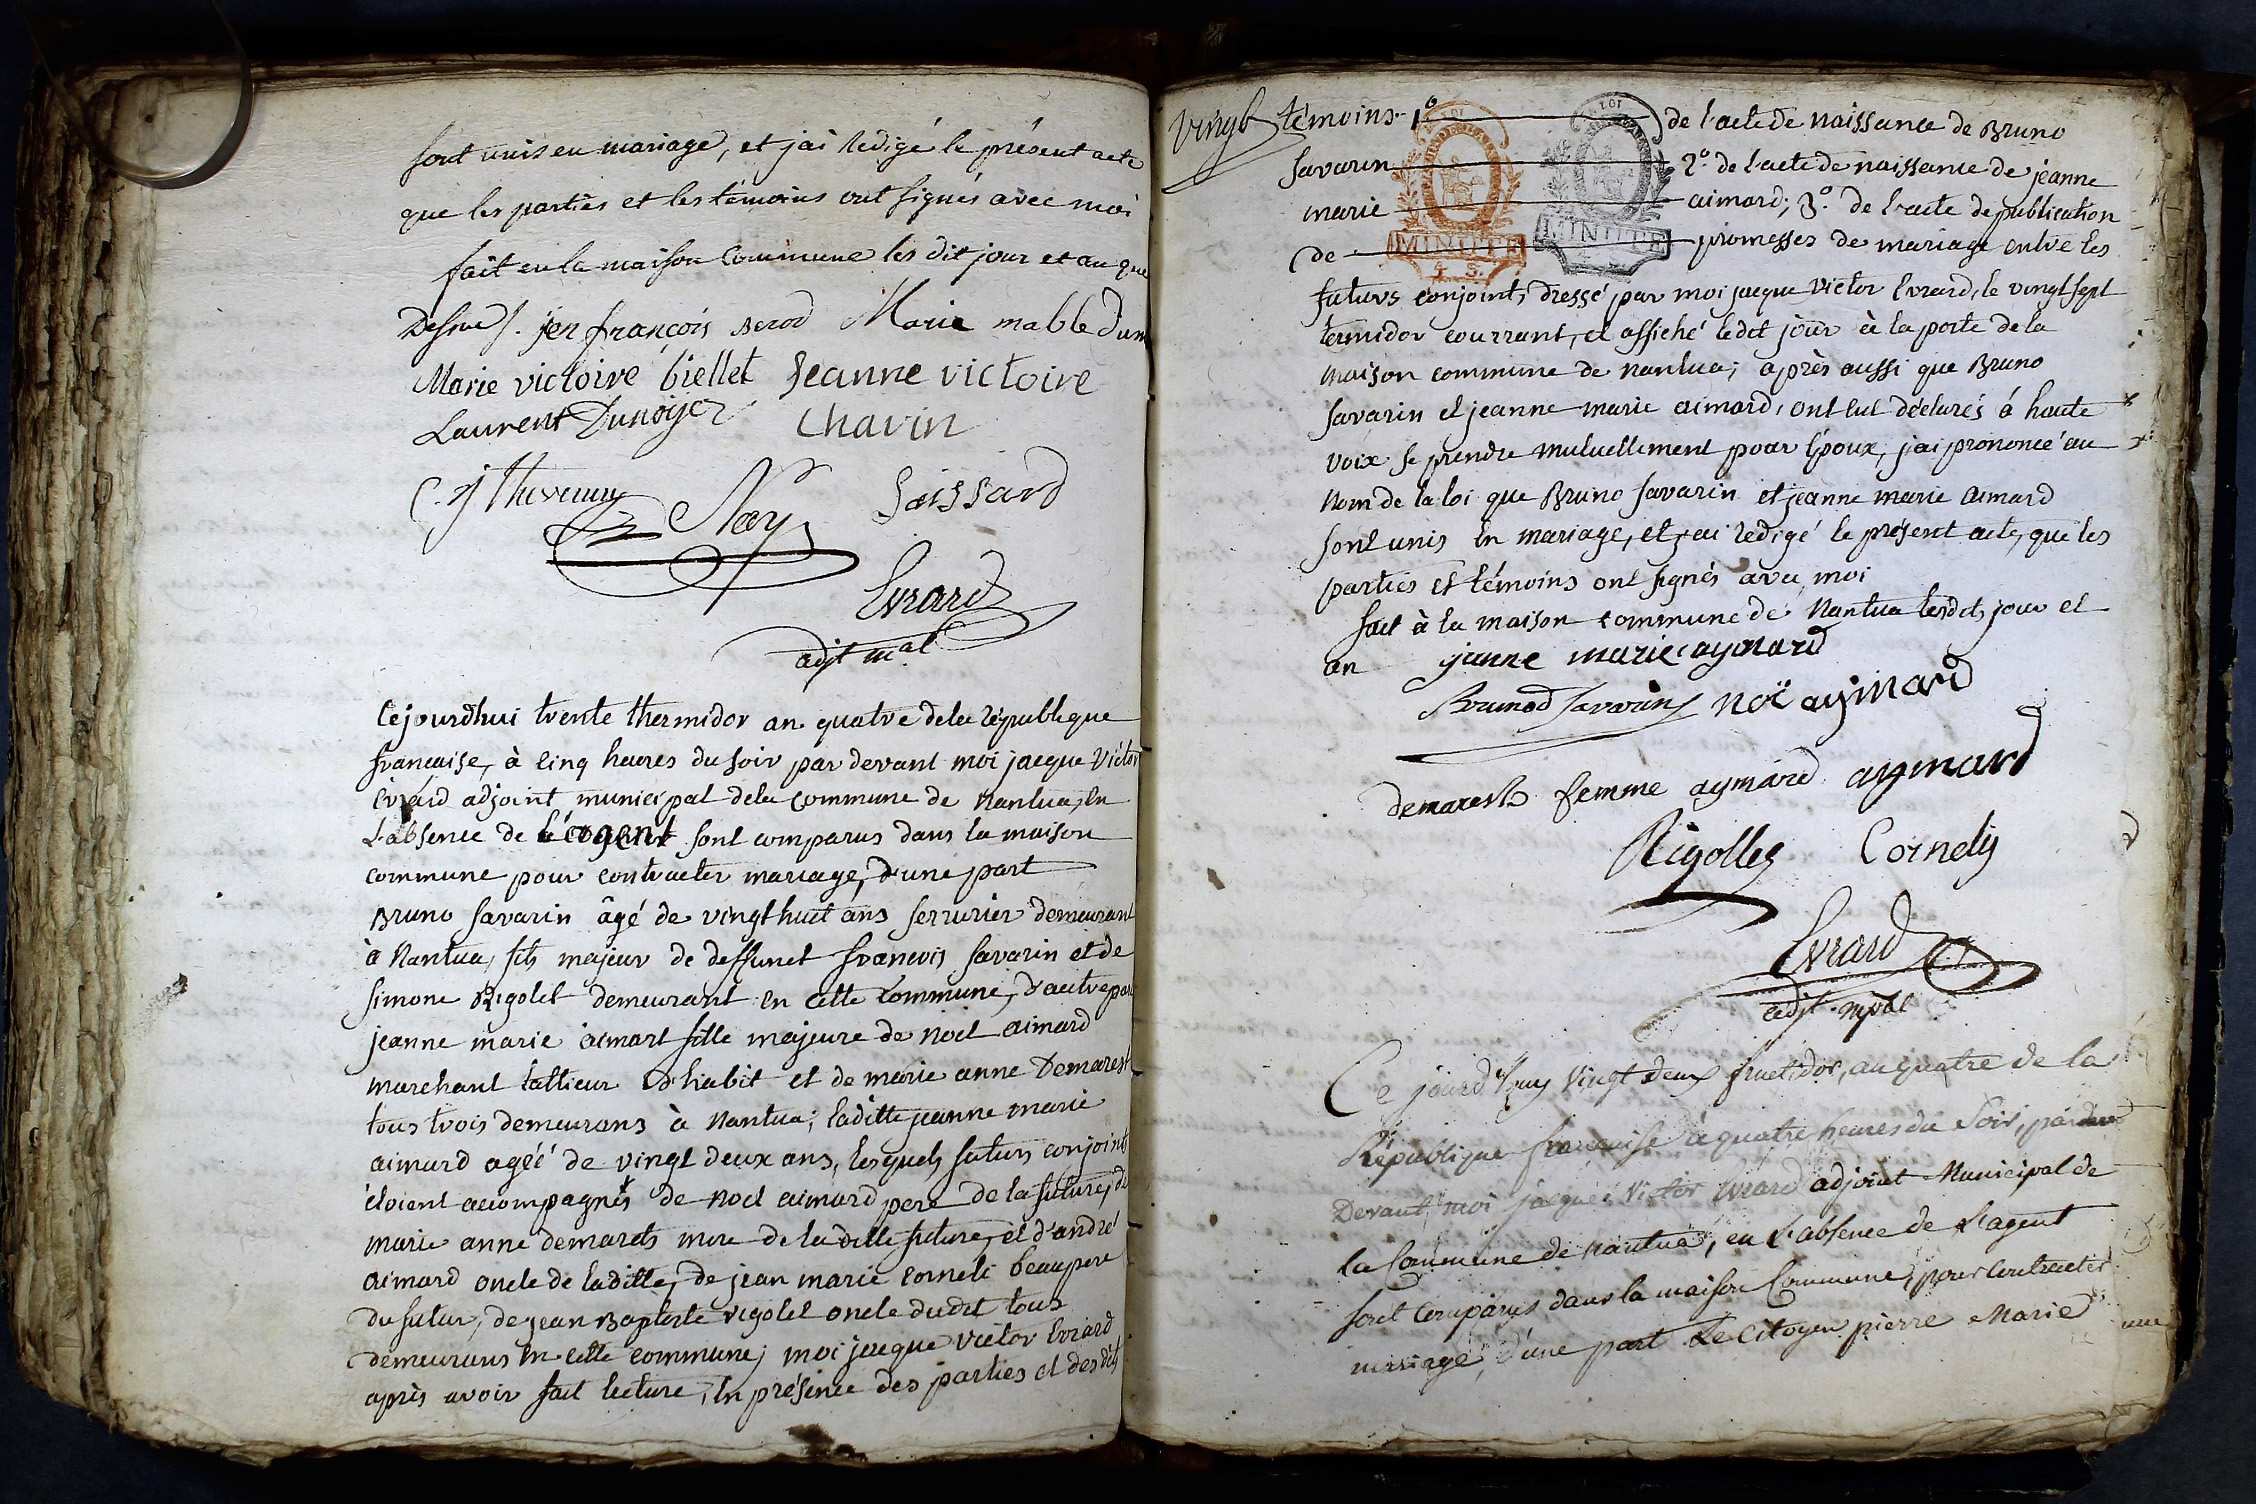 sont unis en mariage, et j'ai redigé le présent acte
que les parties et les témoins ont signés avec moi
fait en la maison Commune les dit jour et an que
Dessus. jen françois serod Marie mable dun
Marie victoire biellet Jeanne victoire
Laurent Dunoyer Chavin
C. j Thevenin Nay Saissard
Evrard
adjt mal
Cejourdhui trente thermidor an quatre dela republique
francaise, à cinq heures du soir par devant moi jacque Victor
Evrard adjoint municipal dela commune de nantua, en
L'absence de L'agent sont comparus dans la maison
commune pour contracter mariage, d'une part
Bruno Savarin âgé de vingt huit ans serrurier demeurant
à Nantua, fils majeur de deffunct francois savarin et de
simone Rigolet demeurant en cette commune, d'autre part
jeanne marie aimart fille majeure de noel aimard
marchant tallieur d'habit et de marie anne Demarest
tous trois demeurans à Nantua; laditte jeanne marie
aimard ageé de vingt deux ans, lesquels futurs conjoints
étoient accompagnés de noel aimard pere de la future, de
marie anne demarets mere de la ditte future, et d'andré
aimard oncle de laditte, de jean marie corneli beaupere
du futur, de jean Baptiste rigolet oncle dudit tous
demeurans en cette commune; moi jacque victor Evrard
après avoir fait lecture, en présence des parties et des dits
vingt témoins. 1º de l'acte de naissance de Bruno
Savarin 2º. de l'acte de naissance de jeanne
marie aimard; 3º. de l'acte de publication
de promesses de mariage entre les
LOI
LOI
MINUTE
MINUTE
4 S.
futurs conjoints, dressé par moi jacque victor Evrard, le vingt sept
termidor courrant, et affiché ledit jour à la porte de la
maison commune de nantua; après aussi que Bruno
savarin et jeanne marie aimard, ont eut déclarés à haute
voix se prendre mutuellement pour Epoux, j'ai prononcé au
nom de la loi que Bruno Savarin et jeanne marie aimard
sont unis en mariage, et j'ai redigé le présent acte, que les
parties et témoins ont signés avec moi
fait à la maison commune de Nantua lesdits jour et
an janne marie aymard
Brunod Savarin noï aymard
demarest femme aymard aymard
Rigollez Cornely
Evrard
adjt. mpal
Ce jourd'huy vingt deux fructidor, an quatre de la
République francaise à quatre heures du soir, par
Devant moi jacque Victor Evrard adjoint Municipal de
la Commune de nantua, en L'absence de L'agent
sont Comparus dans la maison Commune, pour Contracter
mariage, d'une part Le Citoyen pierre Marie